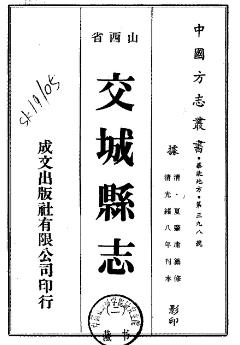 中國方志叢書・華北地方・第三九八號
據清・夏肇庸纂修
清光緒八年刊本
影印
山西省
交城縣志
成文出版社有限公司印行